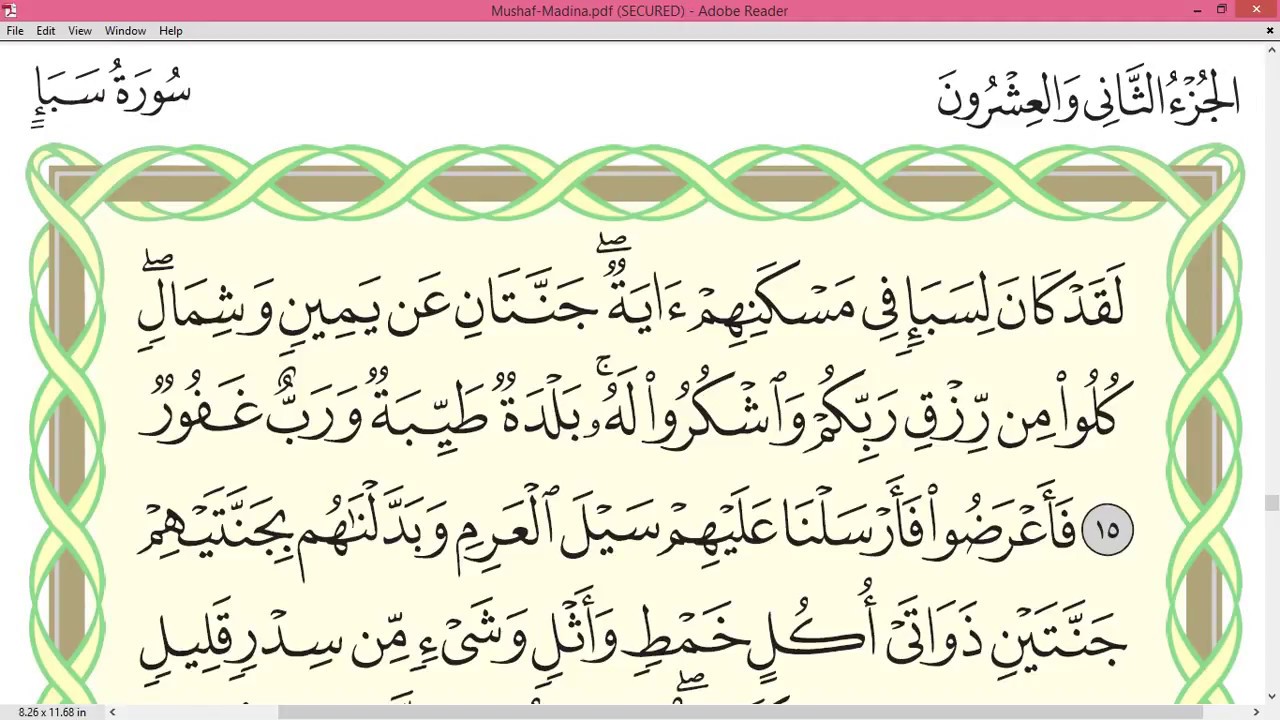 Mushaf-Madina.pdf (SECURED) - Adobe Reader
File Edit View Window Help
الجُزْءُ الثَّانِي وَالعِشْرُونَ
سُورَةُ سَبَإٍ
لَقَدْ كَانَ لِسَبَإٖ فِي مَسْكَنِهِمْ ءَايَةٞۖ جَنَّتَانِ عَن يَمِينٖ وَشِمَالٖۖ
كُلُوا۟ مِن رِّزْقِ رَبِّكُمْ وَٱشْكُرُوا۟ لَهُۥۚ بَلْدَةٞ طَيِّبَةٞ وَرَبٌّ غَفُورٞ
١٥ فَأَعْرَضُوا۟ فَأَرْسَلْنَا عَلَيْهِمْ سَيْلَ ٱلْعَرِمِ وَبَدَّلْنَٰهُم بِجَنَّتَيْهِمْ
جَنَّتَيْنِ ذَوَاتَيْ أُكُلٍ خَمْطٖ وَأَثْلٖ وَشَيْءٖ مِّن سِدْرٖ قَلِيلٖ
8.26 x 11.68 in